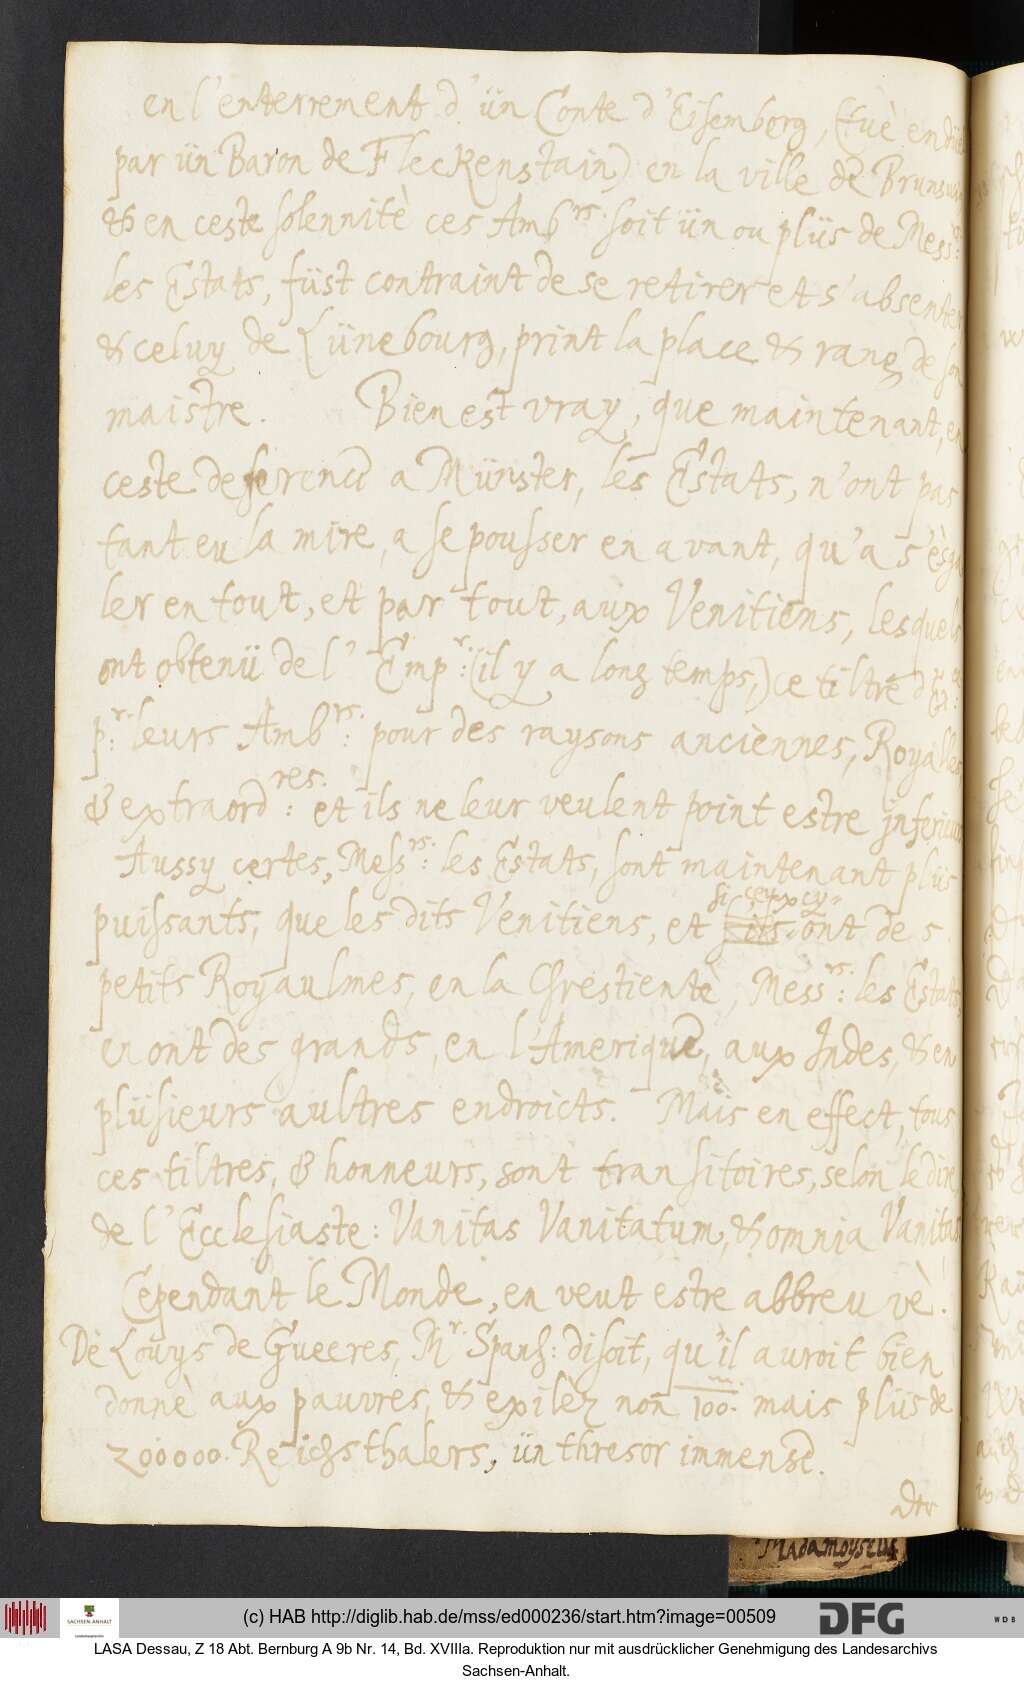 en l'enterrement d'ün Conte d'Eisemberg, (tuè en düel
par ün Baron de Fleckenstain) en la ville de Brunswi
& en ceste solennitè ces Amb:rs. soit ün ou plüs de Mess:rs.
les Estats, füst contraint de se retirer et s'absenter
& celuy de Lünebourg, print la place & rang de son
maistre. Bien est vray, que maintenant, en
ceste deference a Münster, les Estats, n'ont pas
tant eu la mire, a se pousser en avant, qu'a s'èsga
ler en tout, et par tout, aux Venitiens, lesquels
ont obtenü de l' Emp:r. (il y a long temps,) ce tiltre d'
p:r. leurs Amb:rs. pour des raysons anciennes, Royalles
& extraord:res. et ils ne leur veulent point estre jnferieurs
Aussy certes, Mess:rs. les Estats, sont maintenant plüs
puissants, que les dits Venitiens, et si ceux cy ont des
petits Royaulmes, en la Chrestientè, Mess:rs. les Estats
en ont des grands, en l'Amerique, aux Jndes, & en
plüsieurs aultres endroicts. Mais en effect, tous
ces tiltres, & honneurs, sont transitoires, selon le dire
de l'Ecclesiaste: Vanitas Vanitatum, & omnia Vanitas
Cependant le Monde, en veut estre abbreuvè.
De Louys de Gueeres, Mr. Spans: disoit, qu'il auroit bien
donnè aux pauvres, & exilèz non 100. mais plüs de
200000. Reichsthalers, ün thresor immense.
Madamoyselle
(c) HAB http://diglib.hab.de/mss/ed000236/start.htm?image=00509
SACHSEN-ANHALT
Landeshauptarchiv
DFG
WDB
LASA Dessau, Z 18 Abt. Bernburg A 9b Nr. 14, Bd. XVIIIa. Reproduktion nur mit ausdrücklicher Genehmigung des Landesarchivs
Sachsen-Anhalt.